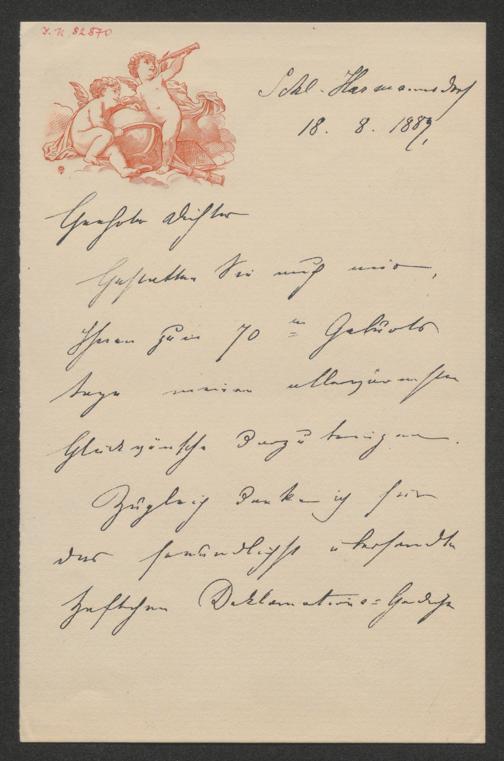 I. N. 82870
Schl. Harmannsdorf
18. 8. 1889.
Geehrter Dichter
Gestatten Sie auch mir,
Ihnen zum 70ten Geburts
tage meinen allerwärmsten
Glückwünsche darzubringen.
Zugleich danke ich für
das freundlichst übersandte
Heftchen Deklamations=Gedichte